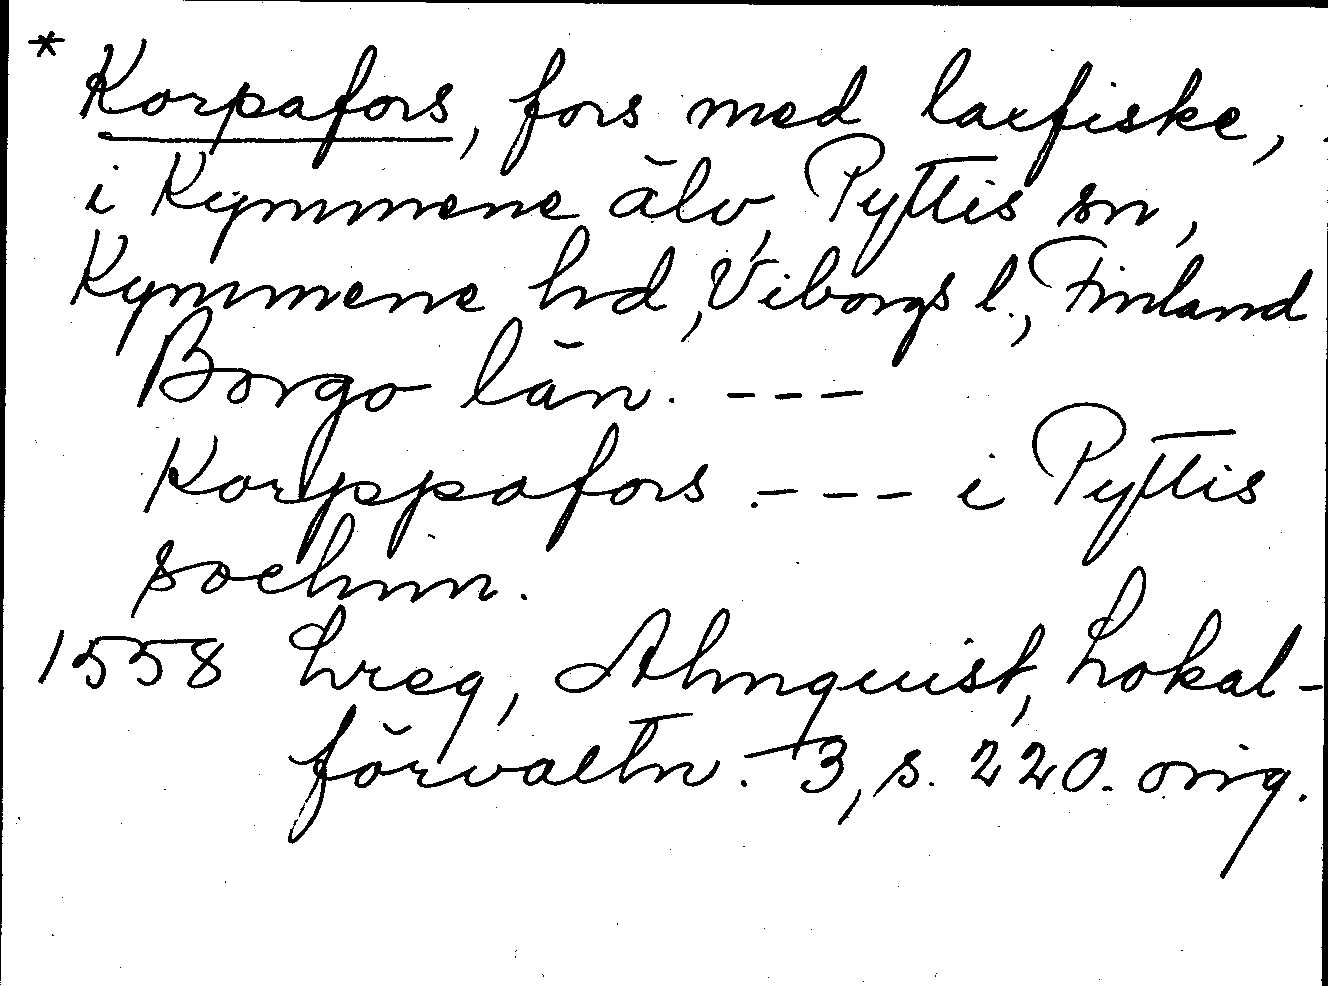 * Korpafors, fors med laxfiske,
i Kymmene älv, Pyttis sn,
Kymmene hd, Viborgs l., Finland
Borgo län. ---
Korppafors. --- i Pyttis
sochnn.
1558 Lreg, Almquist, Lokal-
förvaltn. 3, s. 220. orig.